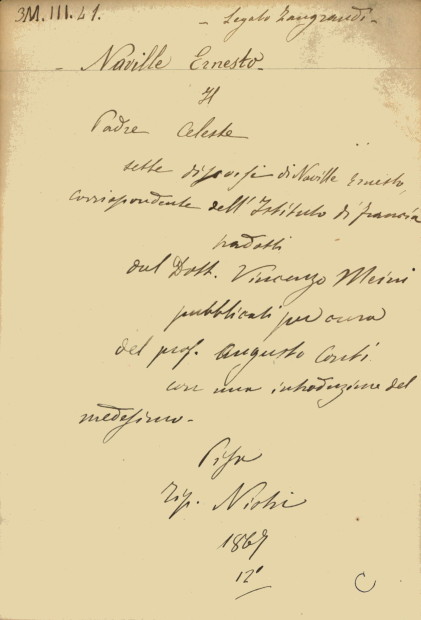 3M.III.41. - Legato Zangrandi -
- Naville Ernesto -
Il
Padre Celeste
sette discorsi di Naville Ernesto,
corrispondente dell'Istituto di Francia
tradotti
dal Dott. Vincenzo Meini
pubblicati per cura
del prof. Augusto Conti
con una introduzione del
medesimo -
Pisa
Tip. Nistri
12°
C